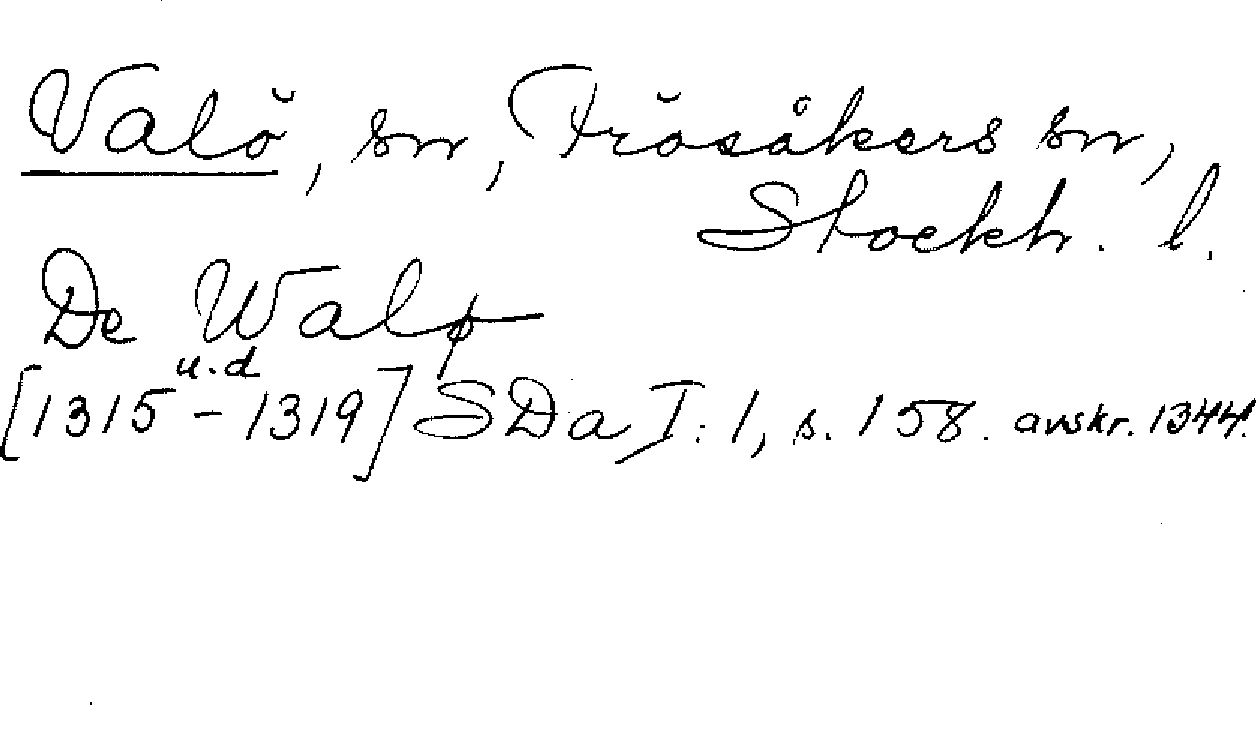 Valö, sn, Frösåkers sn,
Stockh. l.
De Walø
u.d
[1315 - 1319] SDa I: 1, s. 158. avskr. 1344.